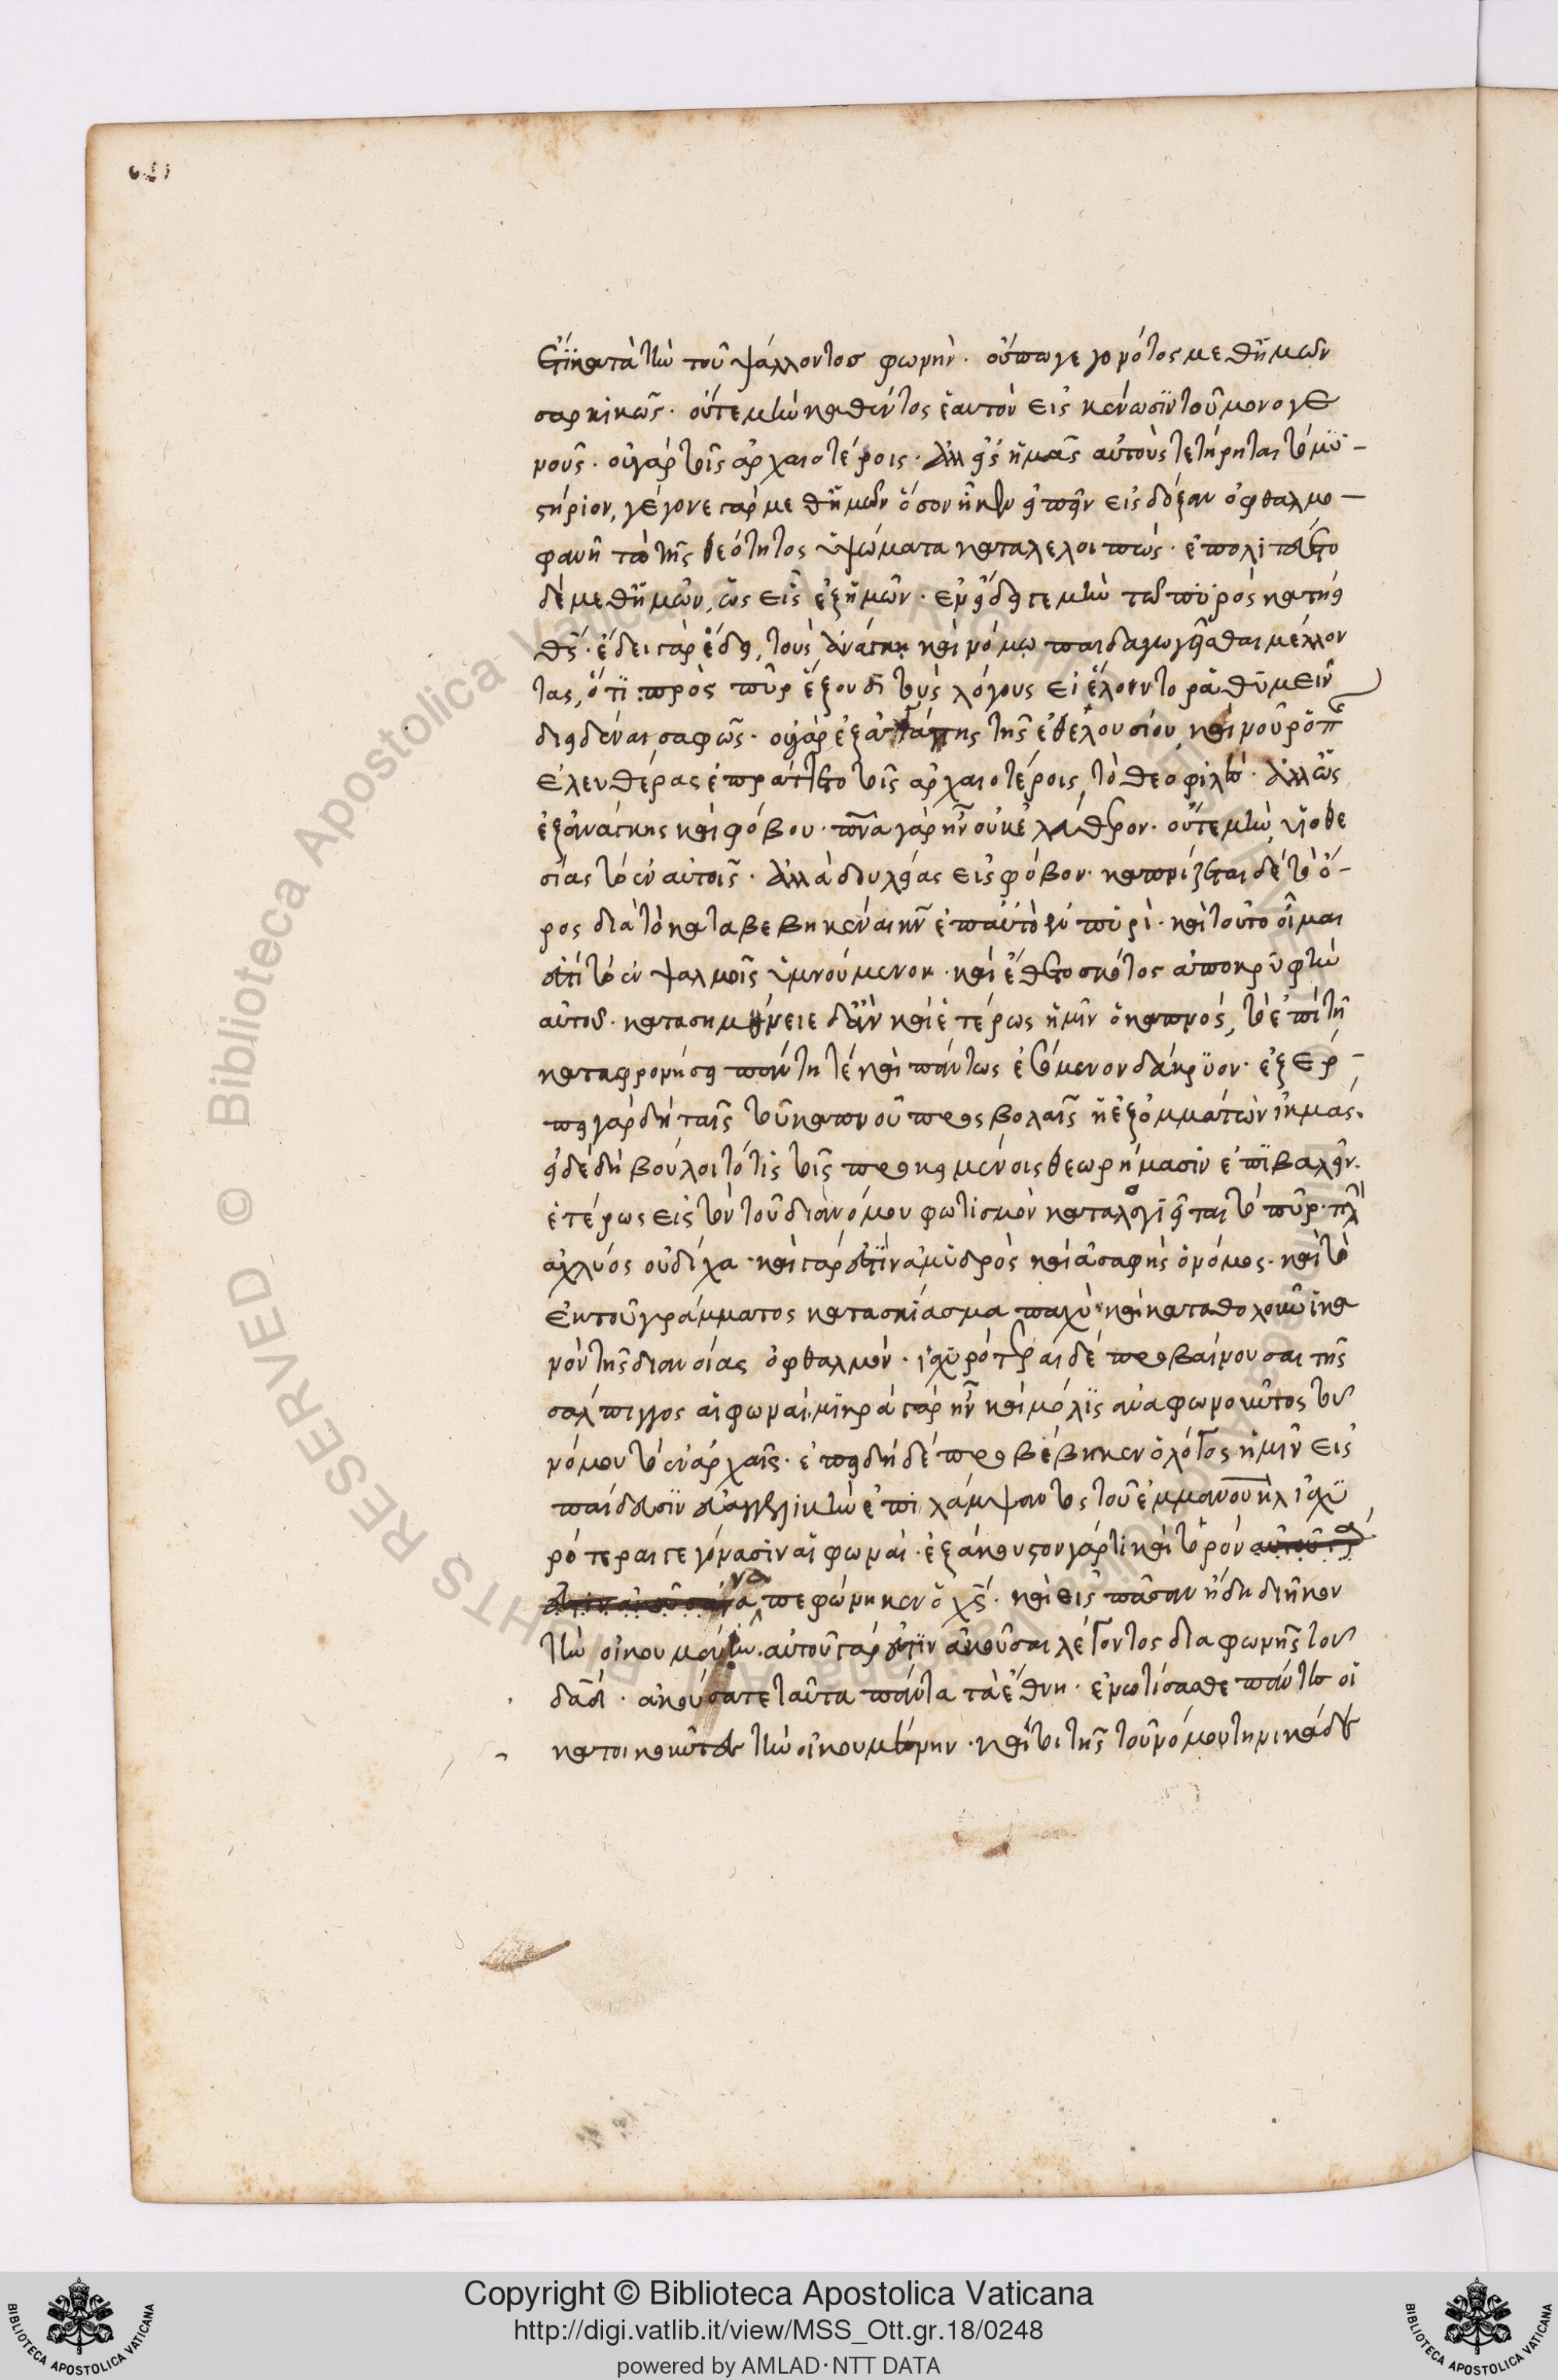 ἔτι κατὰ τὴν τοῦ ψάλλοντος φωνήν. οὔπω γεγονότος μεθ' ἡμῶν
σαρκικῶς. οὔτε μὴν καθέντος ἑαυτὸν εἰς κένωσιν τοῦ μονογε
νοῦς. οὐ γὰρ τοῖς ἀρχαιοτέροις. ἀλλ' εἰς ἡμᾶς αὐτοὺς τετήρηται τὸ μυ-
στήριον, γέγονε γὰρ μεθ' ἡμῶν ὅσον ἧκεν εἰπεῖν εἰς δόξαν ὀφθαλμο-
φανῆ τὰ τῆς θεότητος ὑψώματα καταλελοιπώς. ἐπολιτεύετο
δὲ μεθ' ἡμῶν, ὡς εἷς ἐξ ἡμῶν. ἐν εἴδει γε μὴν τῷ πυρὸς κατήει
θς. ἔδει γὰρ ἔδει, τοὺς ἀνάγκῃ καὶ νόμῳ παιδαγωγεῖσθαι μέλλον
τας, ὅτι πρὸς πῦρ ἕξουσι τοὺς λόγους εἰ ἕλοιντο ῥαθυμεῖν
διειδέναι σαφῶς. οὐ γὰρ ἐξ ἀγάπης τῆς ἐθελουσίου, καὶ νοῦ ῥοπῆς
ἐλευθέρας ἐπράττετο τοῖς ἀρχαιοτέροις, τὸ θεοφιλές. ἀλλ' ὡς
ἐξ ἀνάγκης καὶ φόβου. πνα γὰρ ἦν οὐκ ἐλεύθερον. οὔτε μὴν υἱοθε
σίας τὸ ἐν αὐτοῖς. ἀλλὰ δουλείας εἰς φόβον. καπνίζεται δὲ τὸ ὄ-
ρος διὰ τὸ καταβεβηκέναι κν ἐπ' αὐτὸ ἐν πυρί. καὶ τοῦτο οἶμαι
ἐστὶ τὸ ἐν ψαλμοῖς ὑμνούμενον. καὶ ἔθετο σκότος ἀποκρυφὴν
αὐτοῦ. κατασημήνειε δ' ἂν καὶ ἑτέρως ἡμῖν ὁ καπνός, τὸ ἐπὶ τῇ
καταφρονήσει πάντη τὲ καὶ πάντως ἑπόμενον δάκρυον. ἐξέρ-
πει γὰρ δὴ ταῖς τοῦ καπνοῦ προσβολαῖς ἡ ἐξ ὀμμάτων ἰκμάς.
εἰ δὲ δὴ βούλοιτό τις τοῖς προκειμένοις θεωρήμασιν ἐπιβαλεῖν.
ἑτέρως εἰς τὸν τοῦ διὰ νόμου φωτισμὸν καταλογιεῖται τὸ πῦρ. πλὴν
ἀχλύος οὐ δίχα. καὶ γάρ ἐστιν ἀμυδρὸς καὶ ἀσαφὴς ὁ νόμος. καὶ τὸ
ἐκ τοῦ γράμματος κατασκίασμα παχὺ καὶ καταθολοῦν ἱκα
νὸν τῆς διανοίας ὀφθαλμόν. ἰσχυρότεραι δὲ προβαίνουσαι τῆς
σάλπιγγος αἱ φωναί. μικρὰ γὰρ ἦν καὶ μόλις ἀναφωνοῦντος τοῦ
νόμου τὸ ἐν ἀρχαῖς. ἐπειδὴ δὲ προβέβηκεν ὁ λόγος ἡμῖν εἰς
παίδευσιν εὐαγγελικὴν ἐπιλάμψαντος τοῦ ἐμμανουὴλ ἰσχυ
ρότεραι γεγόνασιν αἱ φωναί. ἐξάκουστον γάρ τι καὶ τορὸν αὐτοῦ γὰρ
ἐστιν ἀκοῦσαι ἀναπεφώνηκεν ὁ χς. καὶ εἰς πᾶσαν ἤδη διῆκον
τὴν οἰκουμένην. αὐτοῦ γάρ ἐστιν ἀκοῦσαι λέγοντος διὰ φωνῆς τοῦ
δαδ. ἀκούσατε ταῦτα πάντα τὰ ἔθνη. ἐνωτίσασθε πάντες οἱ
κατοικοῦντες τὴν οἰκουμένην. καὶ ἐπὶ τῆς τοῦ νόμου τηνικάδε